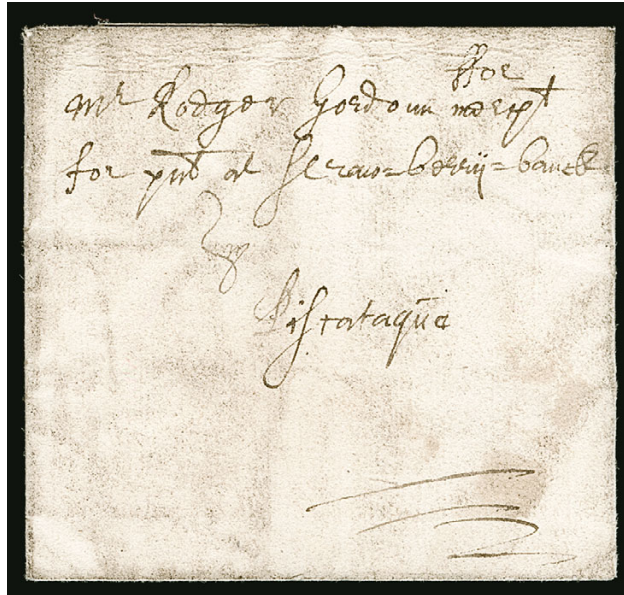 ffor
Mr Rodger Gordoun merct
for pnt at Straw=berrij=banck
In
Piscataqua